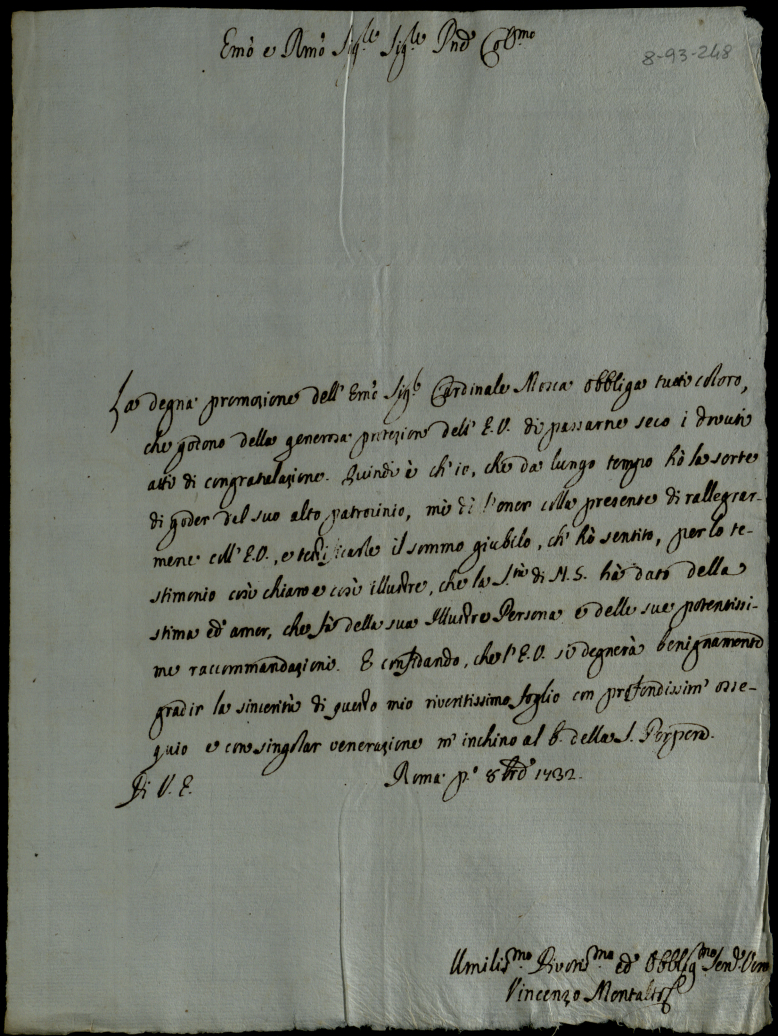 Emo e Rmo Sig.le Sig.le Pnd Col.mo
8-93-248
La degna promozione dell' Emo Sig.r Cardinale Mosca obbliga tutti coloro,
che godono della generosa protezione dell' E.V. di passarne seco i dovuti
atti di congratulazione. Quindi è ch' io, che da lungo tempo hò la sorte
di goder del suo alto patrocinio, mi dò l'onor colla presente di rallegrar-
mene coll' E.V., e testificarle il sommo giubilo, ch' hò sentito, per lo te-
stimonio così chiaro e così illustre, che la S.tà di N.S. hà dato della
stima ed amor, che fà della sua Illustre Persona e delle sue potentissi-
me raccommandazioni. E confidando, che l' E.V. si degnerà benignamente
gradir la sincerità di questo mio riveritissimo foglio con profondissim' osse-
quio e con singolar venerazione m' inchino al b. della S. Porpora.
Di V. E. Roma p.o 8bre 1732.
Umilis.mo Divotis.mo ed Obblig.mo
Vincenzo